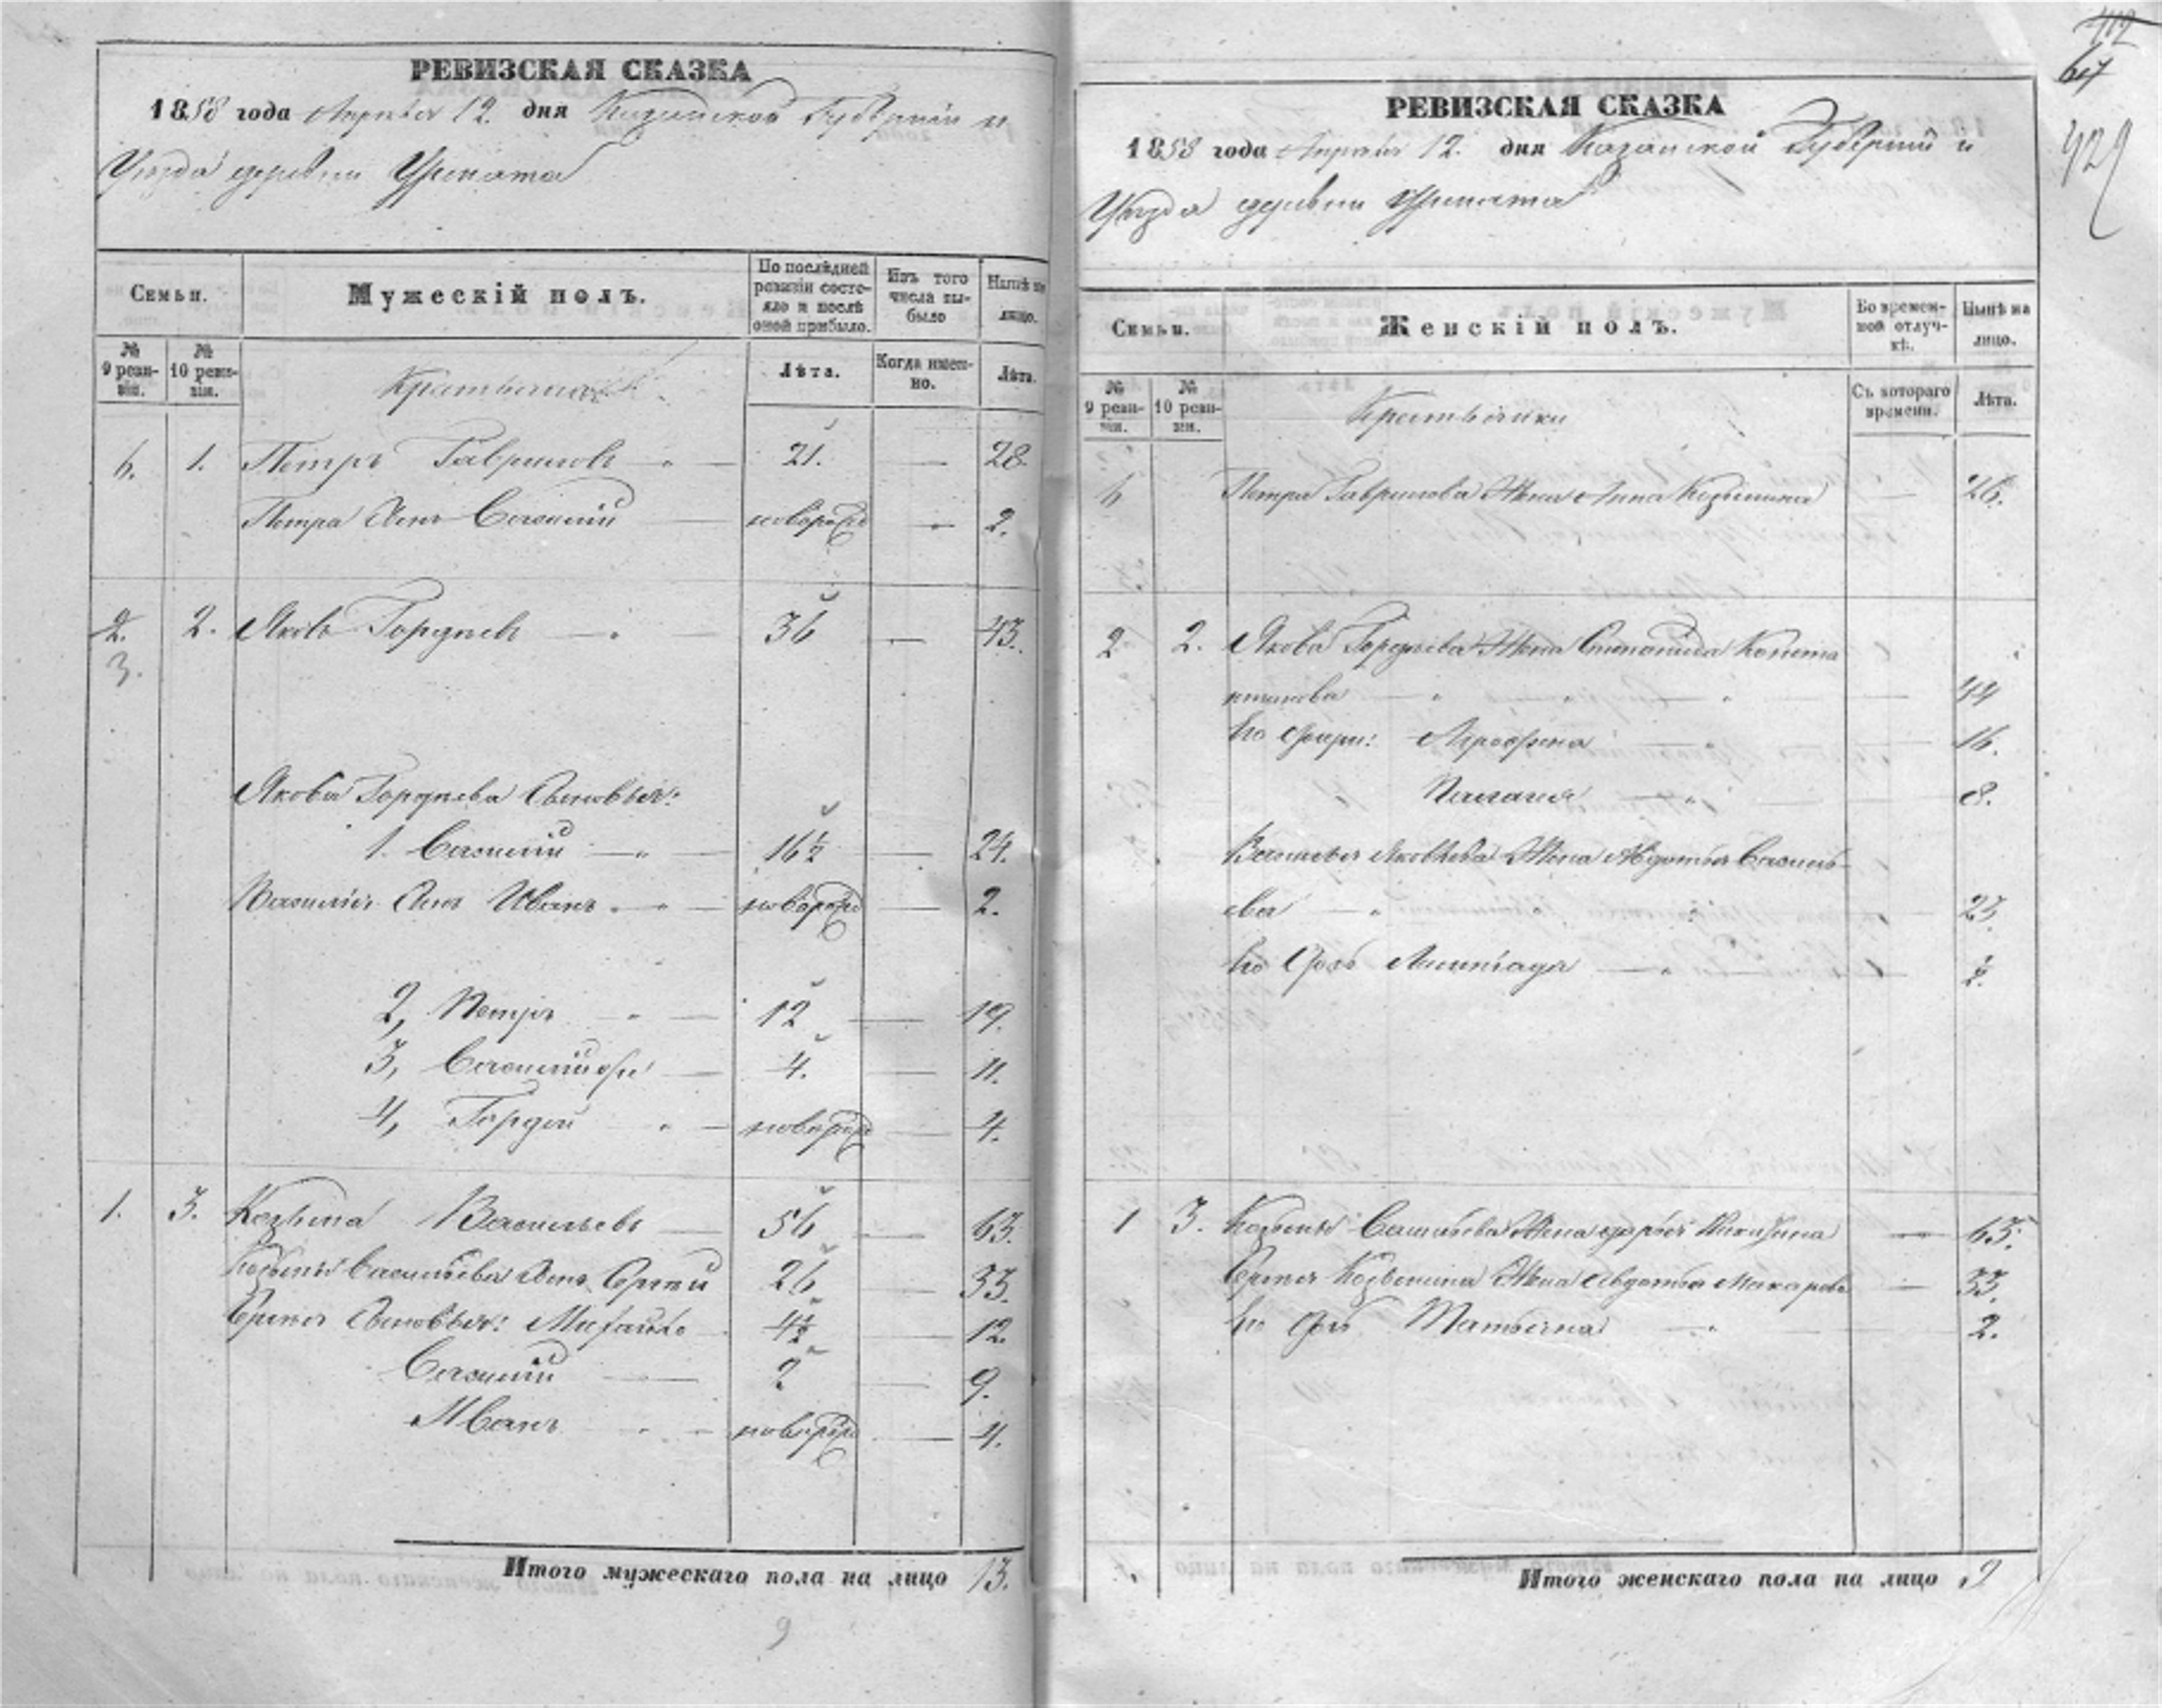 РЕВИЗСКАЯ СКАЗКА
1858 года Апреля 12. дня Казанской Губерніи и
Уезда деревни
Семьи.
Мужескій полъ.
По послѣдней ревизіи состояло и послѣ оной прибыло.
Изъ того числа выбыло
Нынѣ на лицо.
№ 9 ревизіи.
№ 10 ревизіи.
Лѣта.
Когда именно.
Лѣта.
Крестьяне
6. 1. Петръ Гавриловъ 21. 28.
Петра Сынъ Василій новорож 2.
2. 2. Яковъ Гордѣевъ 36 43.
3.
Якова Гордѣева Сыновья:
1. Василій 16½ 24.
Василія Сынъ Иванъ новорож 2.
2, Петръ 12 19.
3, 4. 11.
4, Гордѣй новорож 4.
1. 3. Козьма Васильевъ 56 63.
Козьмы Васильева Сынъ 26 33.
Сыновья: Михайло 4½ 12.
Василій 2 9.
Иванъ новорож 4.
Итого мужескаго пола на лицо 13.
9
412
67
429
РЕВИЗСКАЯ СКАЗКА
1858 года Апреля 12. дня Казанской Губерніи и
Уезда деревни
Семьи.
Женскій полъ.
Во временной отлучкѣ.
Нынѣ на лицо.
№ 9 ревизіи.
№ 10 ревизіи.
Съ котораго времени.
Лѣта.
Крестьянки
6 Петра Гаврилова Жена Анна Козьмина 26.
2 2. Якова Гордѣева Жена Степанида Конста
нтинова 44
Его дочери: 16.
Пелагея 8.
Василья Яковлева Жена Авдотья Василь
ева 23
Его дочь ½.
1 3. Козьмы Васильева Жена Дарья Никитина 65.
Козьмина Жена Авдотья Макарова 33.
Его дочь Татьяна 2.
Итого женскаго пола на лицо 9